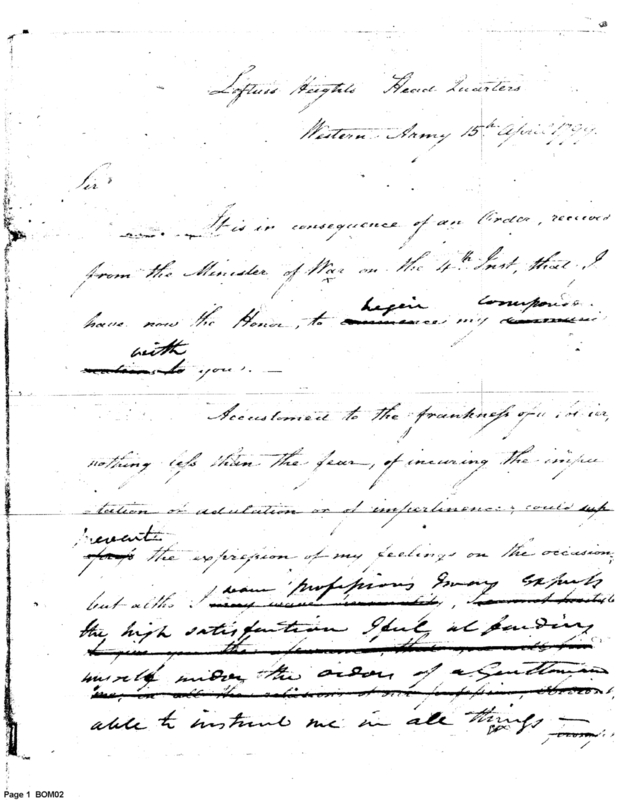 Loftus Heights Head Quarters
Western Army 15th April 1799.
Sir
It is in consequence of an Order, received
from the Minister of War on the 4th Inst, that I
begin correspond.
have now the Honor, to commence my
with
to you. —
Accustomed to the frankness of a
nothing less than the fear, of incuring the impu
tation of adulation or of impertinence, could sup
prevente
press the expression of my feelings on the occasion;
wave professions I may express
but altho I
the high satisfaction I feel at finding
myself under the orders of a Gentleman
able to instruct me in all things —
Page 1 BOM02